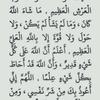 الْعَرْشِ الْعَظِيمِ ، مَا شَاءَ اللَّهُ
كَانَ ، وَمَا لَمْ يَشَأْ لَمْ يَكُنْ ، وَلَا
حَوْلَ وَلَا قُوَّةَ إِلَّا بِاللَّهِ الْعَلِيِّ
الْعَظِيمِ ، أَعْلَمُ أَنَّ اللَّهَ عَلَى كُلِّ
شَيْءٍ قَدِيرٌ ، وَأَنَّ اللَّهَ قَدْ أَحَاطَ
بِكُلِّ شَيْءٍ عِلْمًا ، اللَّهُمَّ إِنِّي